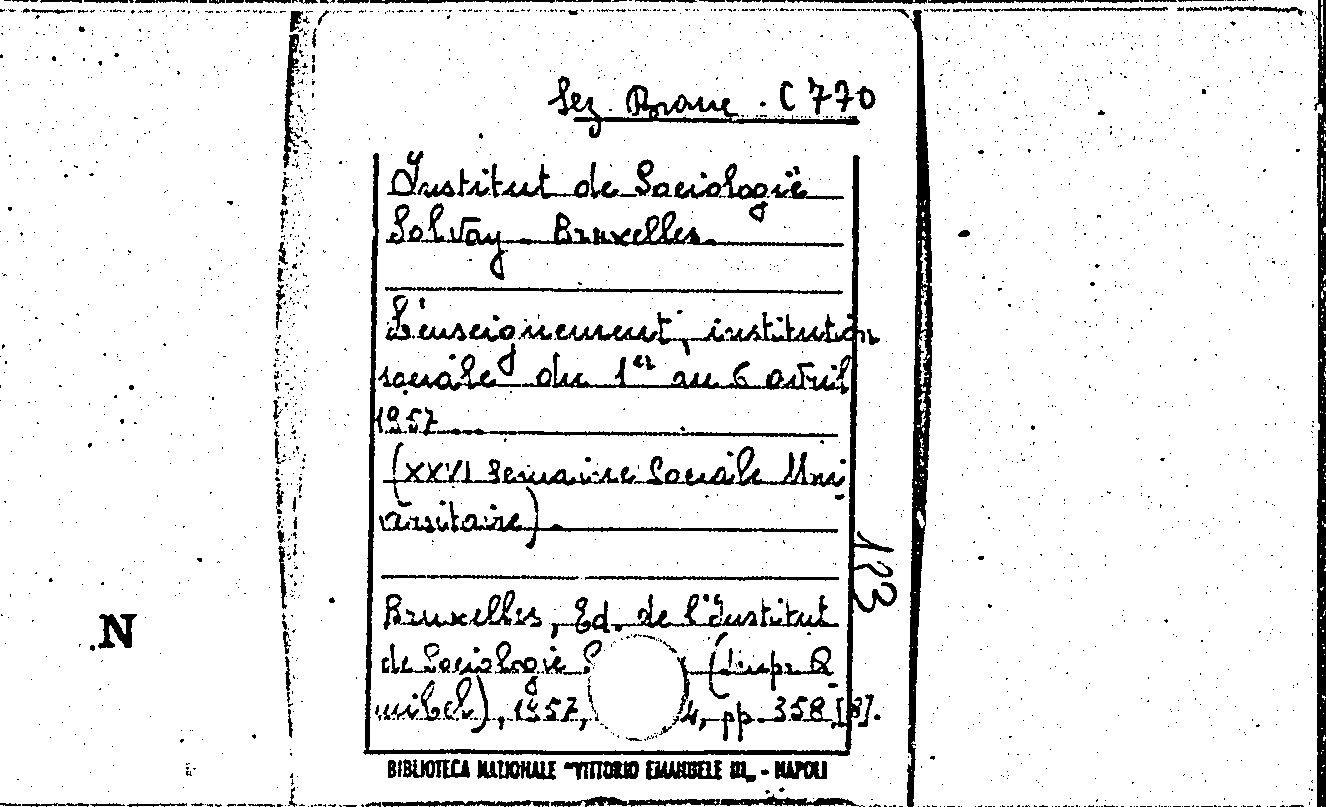 Sez. Branc. C 770
Institut de Sociologie
Solvay - Bruxelles.
L'enseignement, institution
sociale du 1er au 6 avril
1957
(XXVI Semaine Sociale Uni
versitaire).
183
Bruxelles, Ed. de l'Institut
de Sociologie S (Impr.
1957, 4, pp. 358 [8].
BIBLIOTECA NAZIONALE "VITTORIO EMANUELE III" - NAPOLI
N